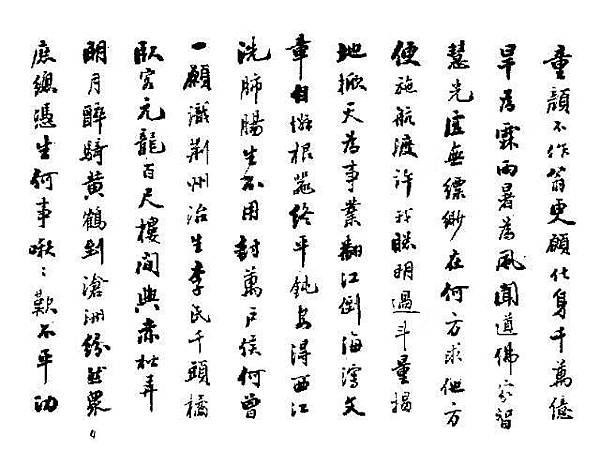 童顏不作翁更願化身千萬億
旱為霖雨暑為風聞道佛家智
慧光虛無縹緲在何方求他方
便施航渡許我聰明過斗量揭
地掀天為事業翻江倒海瀉文
章自慚根器終平鈍安得西江
洗肺腸生不用封萬戶侯何曾
一願識荊州治生李氏千頭橘
臥客元龍百尺樓閒與赤松弄
明月醉騎黃鶴到滄洲紛然眾〃
庶總憑生何事啾〻歎不平功